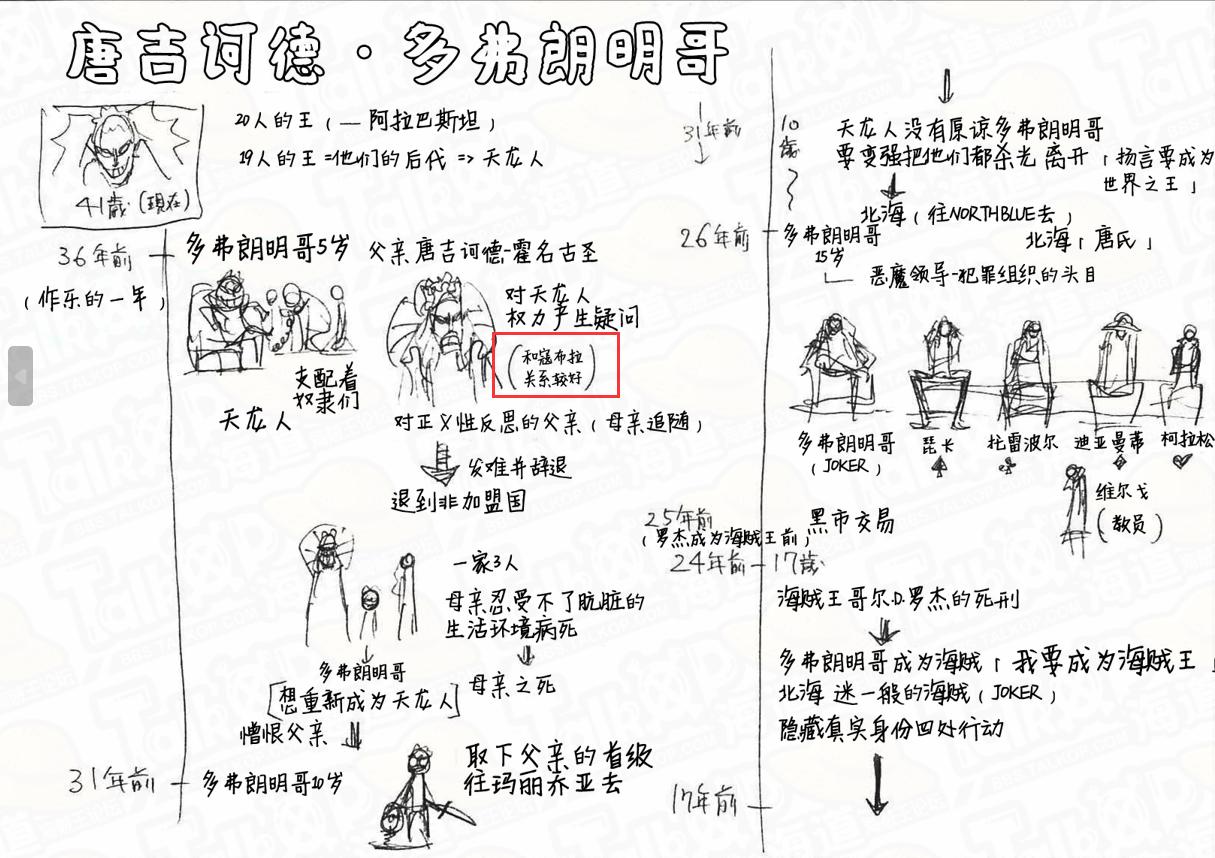 唐吉诃德·多弗朗明哥
20人的王（— 阿拉巴斯坦）
19人的王=他们的后代 => 天龙人
41歳（現在）
36年前
（作乐的一年）
多弗朗明哥5岁 父亲唐吉诃德-霍名古圣
对天龙人
权力产生疑问
（和寇布拉
关系较好）
支配着
奴隶们
天龙人
对正义性反思的父亲（母亲追随）
发难并辞退
退到非加盟国
一家3人
母亲忍受不了肮脏的
生活环境病死
多弗朗明哥
[想重新成为天龙人]
母亲之死
憎恨父亲
31年前
多弗朗明哥10岁
取下父亲的首级
往玛丽乔亚去
31年前
10歳
天龙人没有原谅多弗朗明哥
要变强把他们都杀光 离开「扬言要成为
世界之王」
北海（往NORTHBLUE去）
26年前
多弗朗明哥
15岁
北海「唐氏」
恶魔领导-犯罪组织的头目
多弗朗明哥
（JOKER）
琵卡
托雷波尔
迪亚曼蒂
柯拉松
维尔戈
（教员）
25年前
（罗杰成为海贼王前）
黑市交易
24年前
17歳
海贼王哥尔.D.罗杰的死刑
多弗朗明哥成为海贼「我要成为海贼王」
北海 迷一般的海贼（JOKER）
隐藏真实身份四处行动
17年前